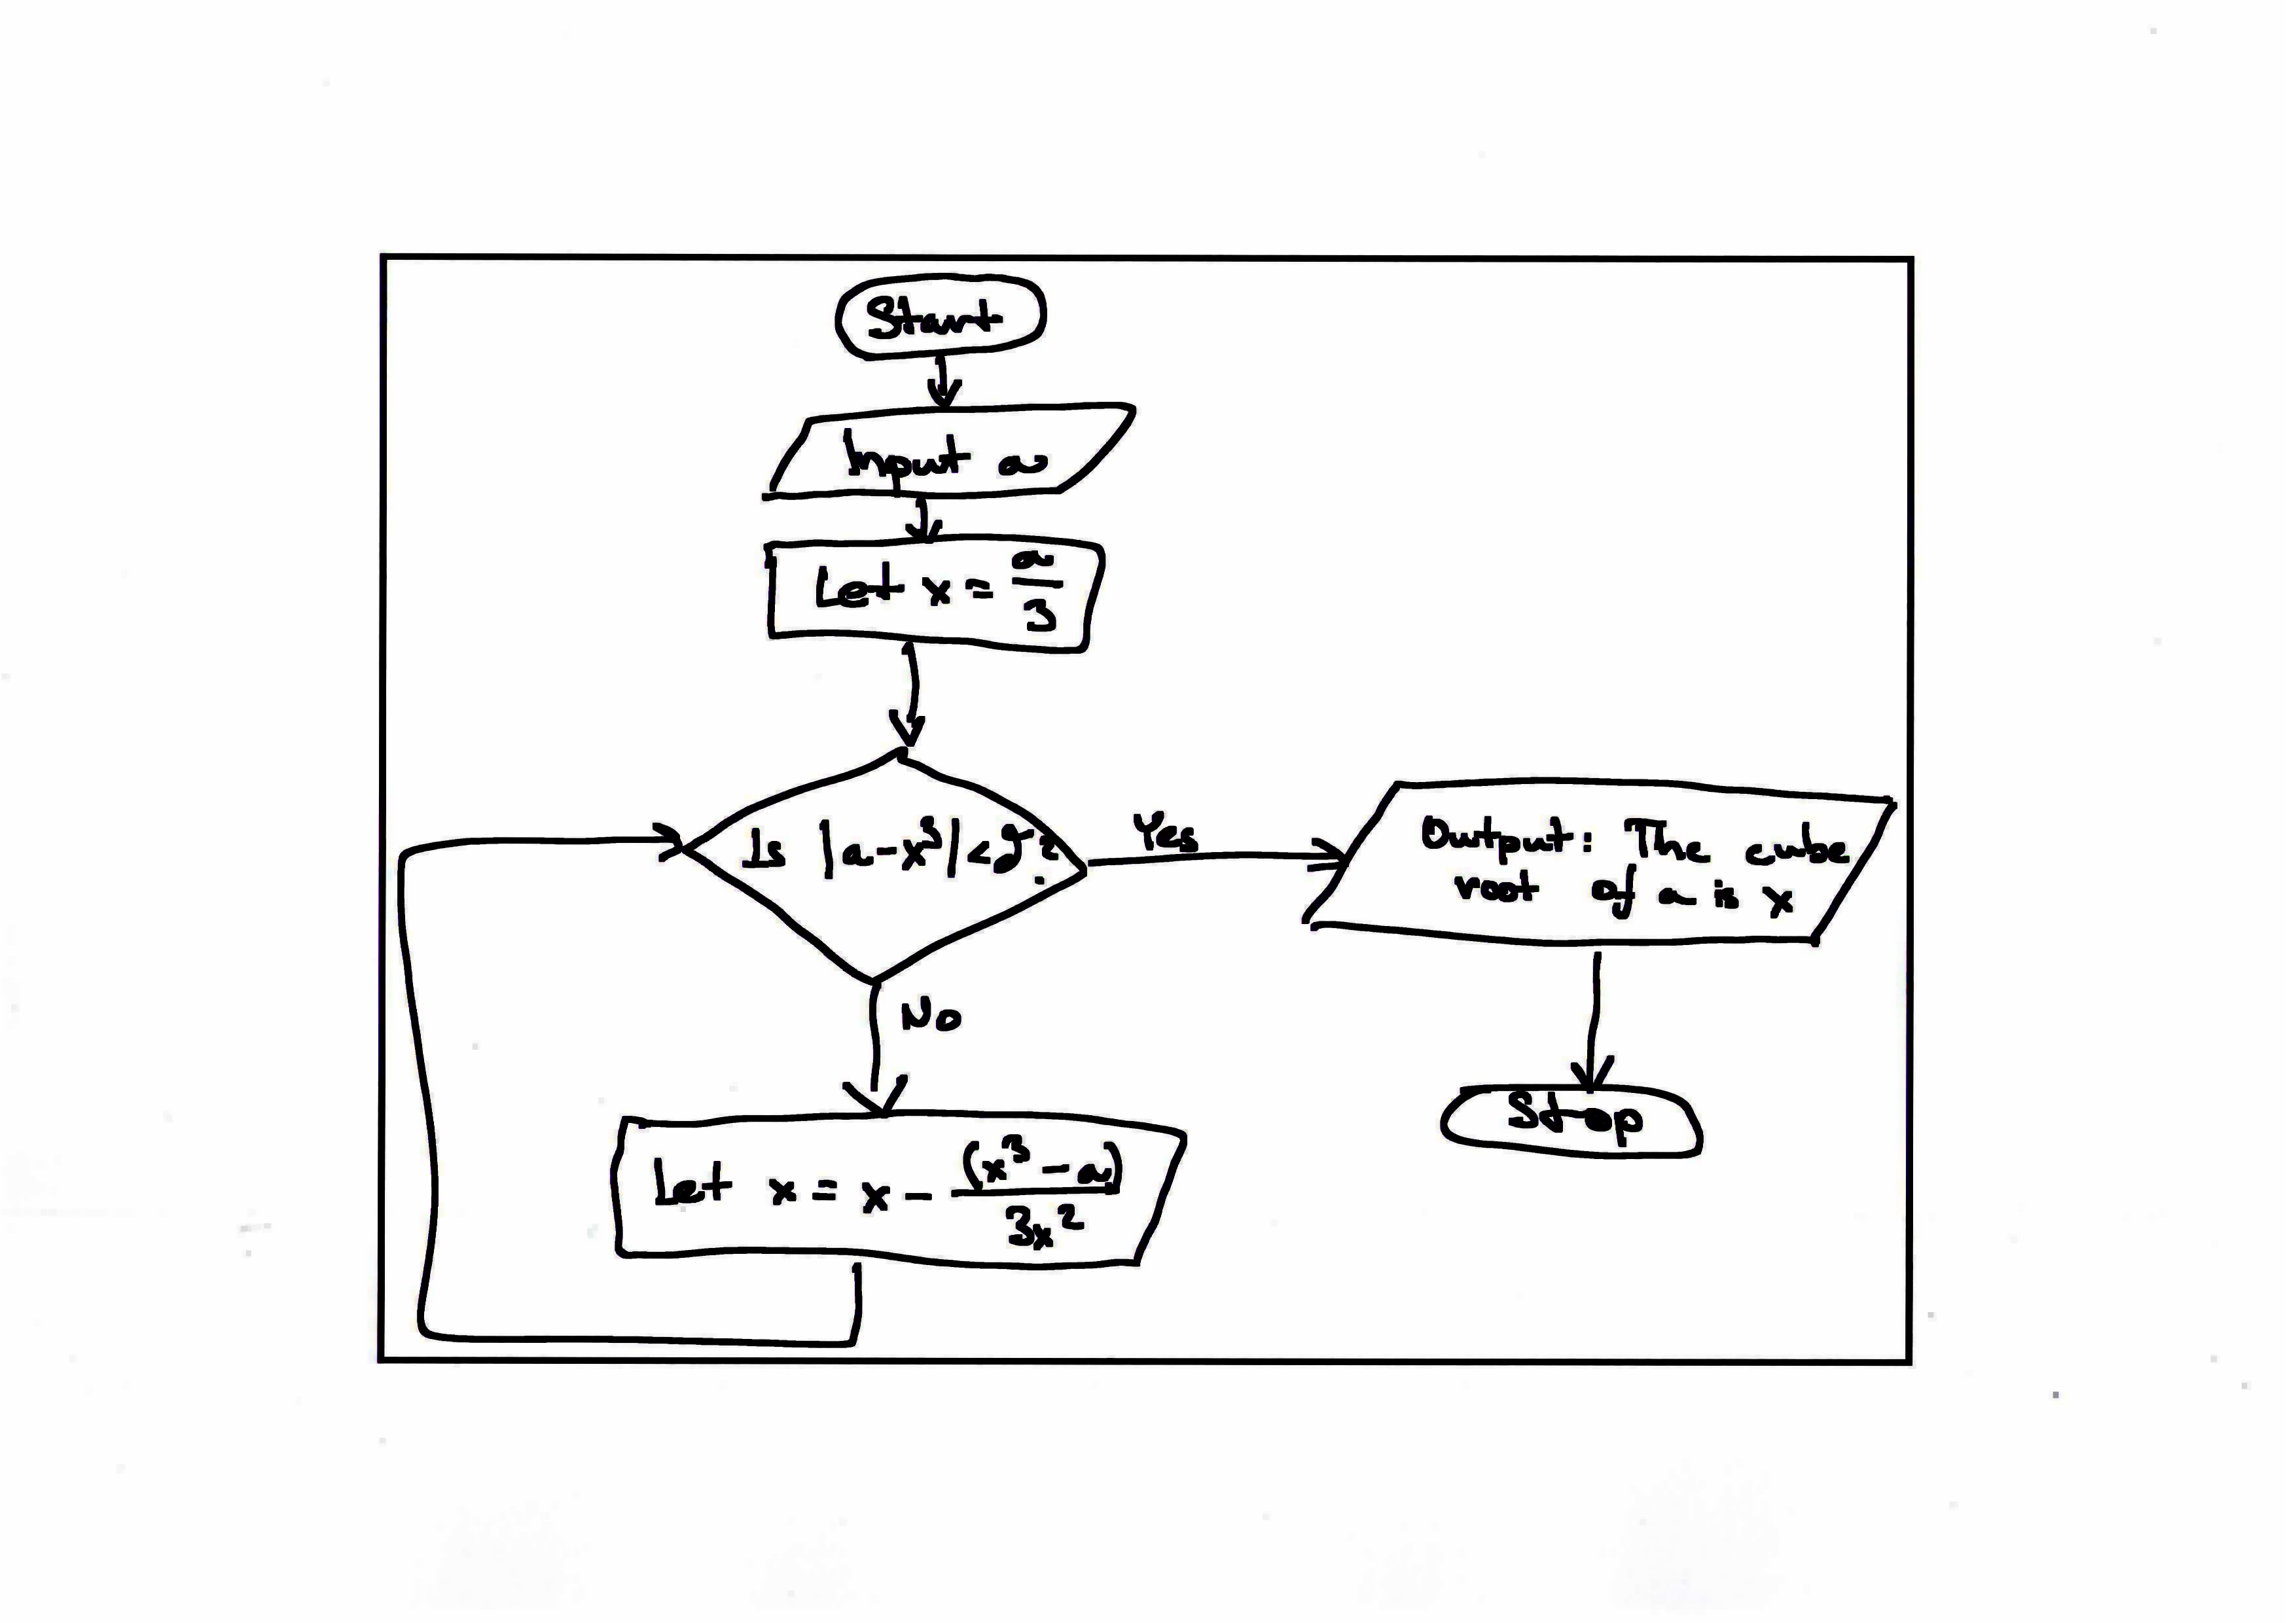 Start
Input a
Let x = a/3
Is |a-x³| <
?
Yes
Output: The cube
root of a is x
No
Let x = x - (x³ - a)/3x²
Stop